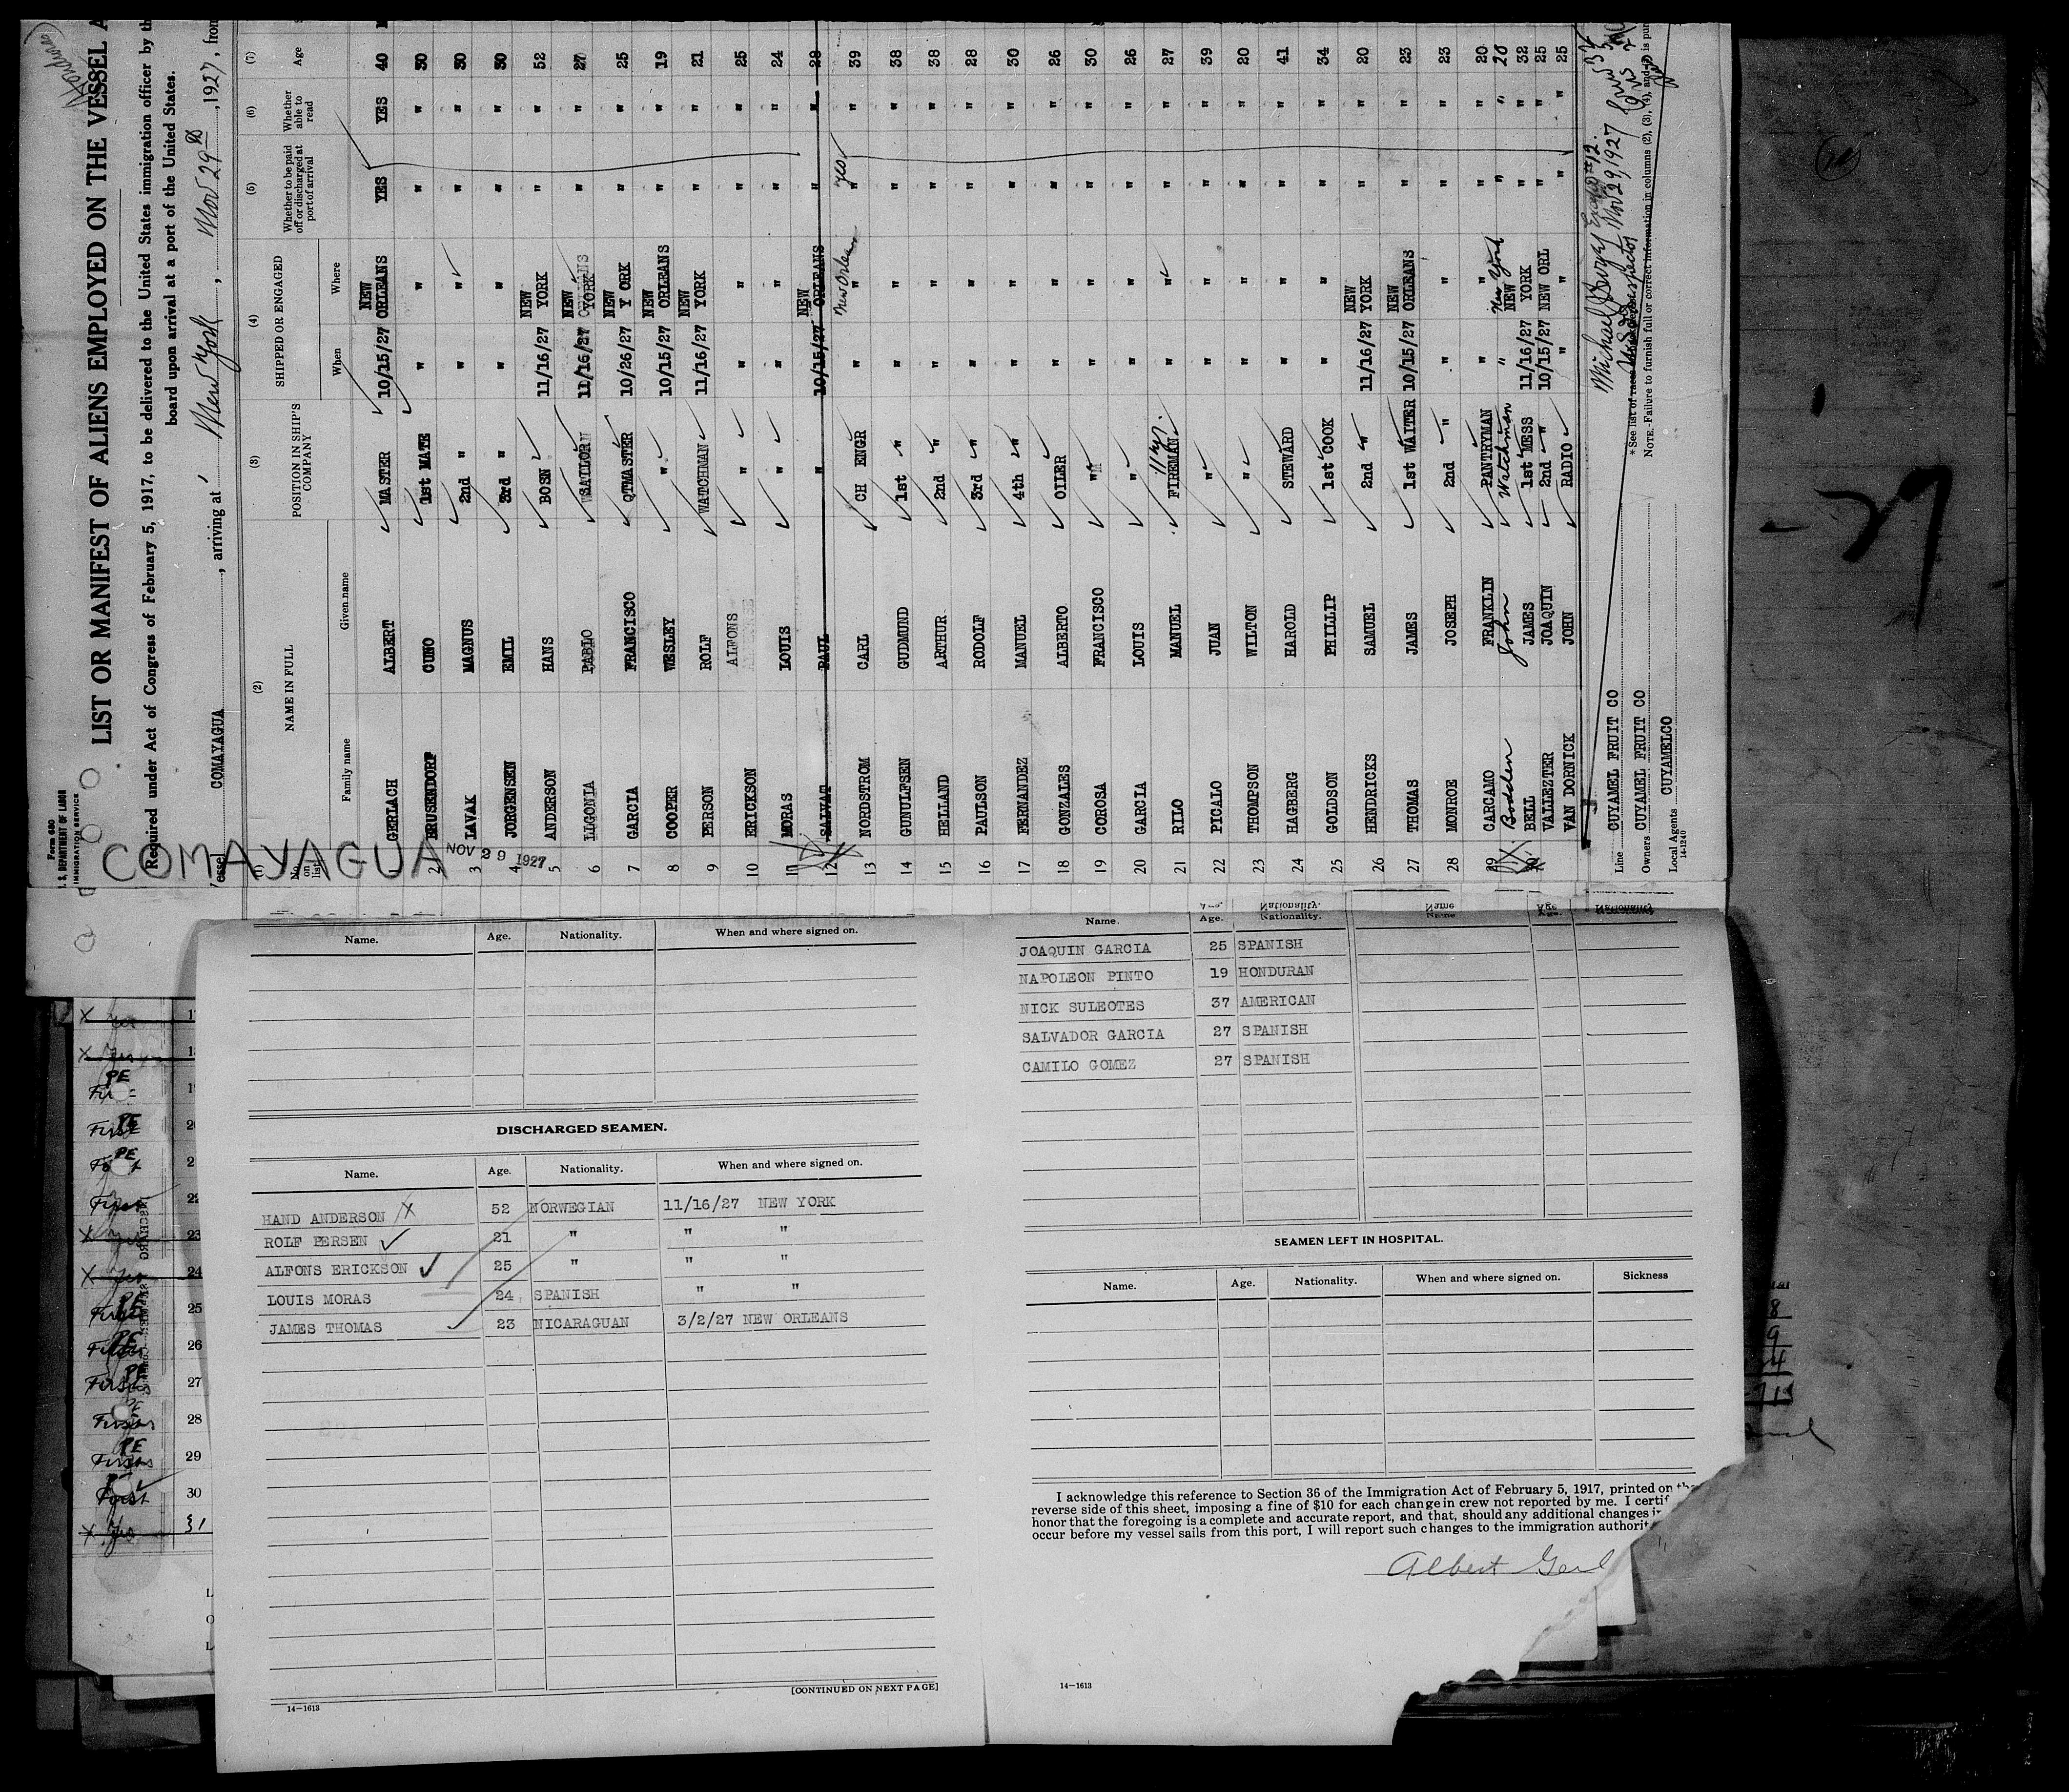 Form 680
U. S. DEPARTMENT OF LABOR
IMMIGRATION SERVICE
LIST OR MANIFEST OF ALIENS EMPLOYED ON THE VESSEL A
Required under Act of Congress of February 5, 1917, to be delivered to the United States immigration officer by th
board upon arrival at a port of the United States.
COMAYAGUA, arriving at New York, Nov 29th, 1927, from
COMAYAGUA
NOV 29 1927
(2) (3) (4) (5) (6) (7)
No. on list
NAME IN FULL
Family name Given name
POSITION IN SHIP'S COMPANY
SHIPPED OR ENGAGED
When Where
Whether to be paid off or discharged at port of arrival
Whether able to read
Age
GERLACH ALBERT MASTER 10/15/27 NEW ORLEANS YES YES 40
2 BRUSENDORF CUNO 1st MATE " " " " 30
3 LAVAK MAGNUS 2nd " " " " " 30
4 JORGENSEN EMIL 3rd " " " " " 30
5 ANDERSON HANS BOSN 11/16/27 NEW YORK " " 52
6 LUGONIA PABLO SAILOR 11/16/27 NEW YORK " " 27
7 GARCIA FRANCISCO QTMASTER 10/26/27 NEW Y ORK " " 25
8 COOPER WESLEY " 10/15/27 NEW ORLEANS " " 19
9 PERSON ROLF WATCHMAN 11/16/27 NEW YORK " " 21
10 ERICKSON ALFONS " " " " " 25
11 MORAS LOUIS " " " " " 24
12 SALVAT PAUL " 10/15/27 NEW ORLEANS " " 28
13 NORDSTROM CARL CH ENGR " New Orleans " yes " 39
14 GUNULFSEN GUDMUND 1st " " " " " 38
15 HELLAND ARTHUR 2nd " " " " " 38
16 PAULSON RODOLF 3rd " " " " " 28
17 FERNANDEZ MANUEL 4th " " " " " 30
18 GONZALES ALBERTO OILER " " " " 26
19 COROSA FRANCISCO " " " " " 30
20 GARCIA LOUIS " " " " " 26
21 RILO MANUEL FIREMAN " " " " 27
22 PICALO JUAN " " " " " 39
23 THOMPSON WILTON " " " " " 20
24 HAGBERG HAROLD STEWARD " " " " 41
25 GOLDSON PHILLIP 1st COOK " " " " 34
26 HENDRICKS SAMUEL 2nd " 11/16/27 NEW YORK " " 20
27 THOMAS JAMES 1st WAITER 10/15/27 NEW ORLEANS " " 23
28 MONROE JOSEPH 2nd " " " " " 23
29 CARCAMO FRANKLIN PANTRYMAN " " " " 20
Bodden John Watchman " New York " " 28
BELL JAMES 1st MESS 11/16/27 NEW YORK " " 32
VALLEZTER JOAQUIN 2nd " 10/15/27 NEW ORL " " 25
VAN DORNICK JOHN RADIO " " " " 25
Line CUYAMEL FRUIT CO
Owners CUYAMEL FRUIT CO
Local Agents CUYAMELCO
14-1240
Nov 29, 1927
*See list of races
NOTE.-Failure to furnish full or correct information in columns (2), (3), (4), and (7) is pun
Name. Age. Nationality. When and where signed on.
DISCHARGED SEAMEN.
Name. Age. Nationality. When and where signed on.
HAND ANDERSON 52 NORWEGIAN 11/16/27 NEW YORK
ROLF PERSEN 21 " " "
ALFONS ERICKSON 25 " " "
LOUIS MORAS 24 SPANISH " "
JAMES THOMAS 23 NICARAGUAN 3/2/27 NEW ORLEANS
[CONTINUED ON NEXT PAGE]
14—1613
Name. Age. Nationality. Name Age. Nationality
JOAQUIN GARCIA 25 SPANISH
NAPOLEON PINTO 19 HONDURAN
NICK SULEOTES 37 AMERICAN
SALVADOR GARCIA 27 SPANISH
CAMILO GOMEZ 27 SPANISH
SEAMEN LEFT IN HOSPITAL.
Name. Age. Nationality. When and where signed on. Sickness
I acknowledge this reference to Section 36 of the Immigration Act of February 5, 1917, printed on the
reverse side of this sheet, imposing a fine of $10 for each change in crew not reported by me. I certif
honor that the foregoing is a complete and accurate report, and that, should any additional changes in
occur before my vessel sails from this port, I will report such changes to the immigration authorit
Albert Gerl
14—1613
22
23
24
25
26
27
28
29
30
31